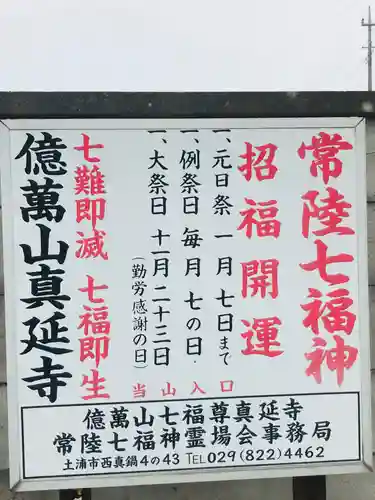 常陸七福神
招福開運
一、元日祭 一月 七日まで
一、例祭日 毎月 七の日
一、大祭日 十一月二十三日
(勤労感謝の日)
七難即滅 七福即生
億萬山真延寺
当山入口
億萬山七福尊真延寺
常陸七福神霊場会事務局
土浦市西真鍋4の43 TEL029(822)4462